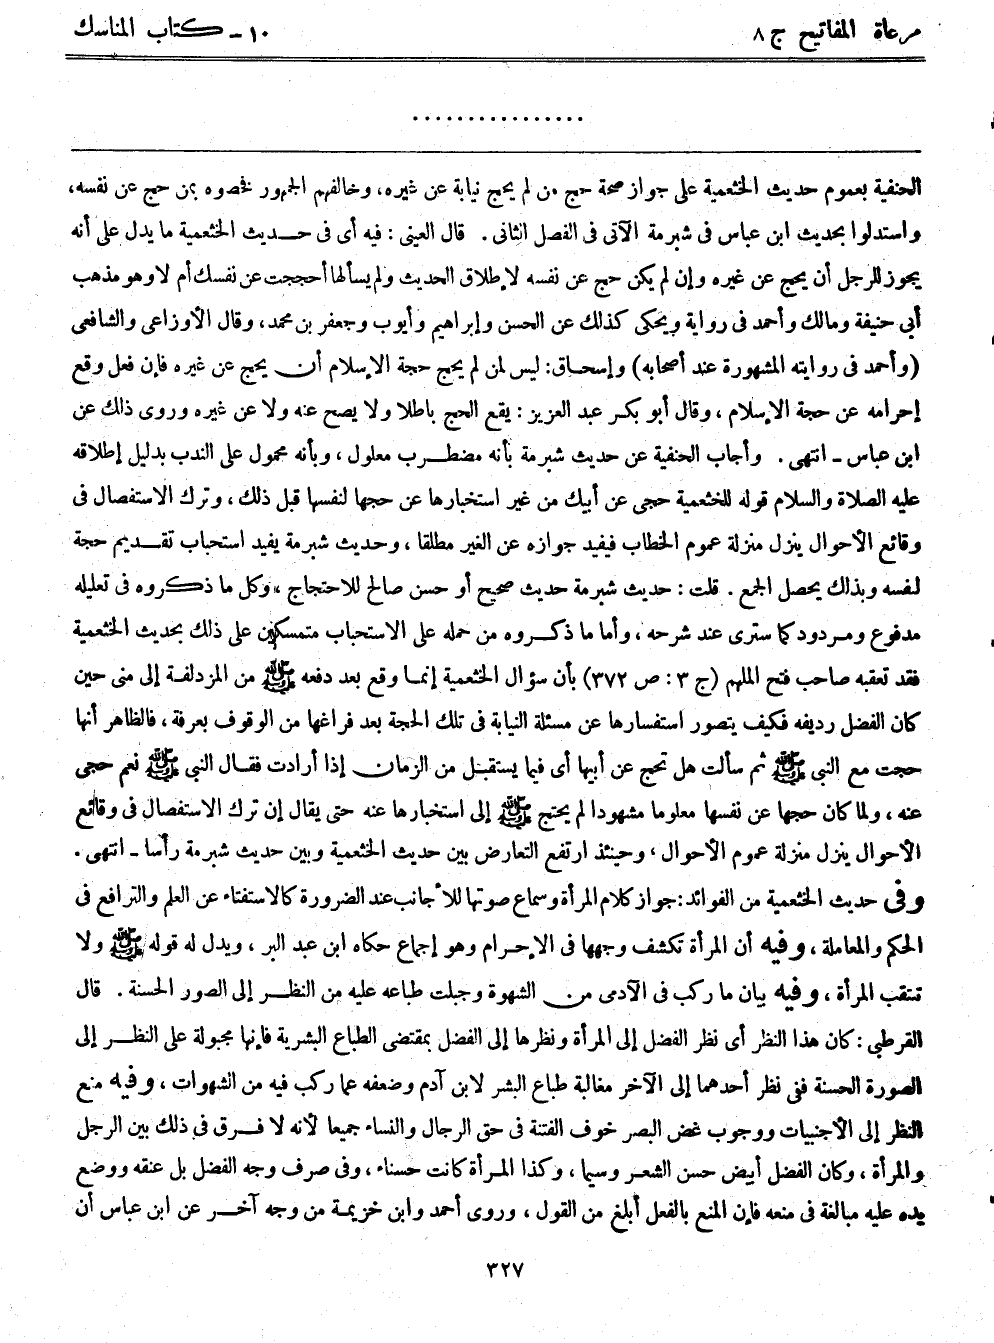 مرعاة المفاتيح ج ٨
١٠ - كتاب المناسك
................
الحنفية بعموم حديث الخثعمية على جواز صحة حج من لم يحج نيابة عن غيره، وخالفهم الجمهور فخصوه بمن حج عن نفسه،
واستدلوا بحديث ابن عباس فى شبرمة الآتى فى الفصل الثانى . قال العينى : فيه أى فى حديث الخثعمية ما يدل على أنه
يجوز للرجل أن يحج عن غيره وإن لم يكن حج عن نفسه لإطلاق الحديث ولم يسألها أحججت عن نفسك أم لا وهو مذهب
أبي حنيفة ومالك وأحمد فى رواية ويحكى كذلك عن الحسن وإبراهيم وأيوب وجعفر بن محمد، وقال الأوزاعى والشافعى
(وأحمد فى روايته المشهورة عند أصحابه) وإسحاق: ليس لمن لم يحج حجة الإسلام أن يحج عن غيره فإن فعل وقع
إحرامه عن حجة الإسلام ، وقال أبو بكر عبد العزيز : يقع الحج باطلا ولا يصح عنه ولا عن غيره وروى ذلك عن
ابن عباس - انتهى . وأجاب الحنفية عن حديث شبرمة بأنه مضطرب معلول ، وبأنه محمول على الندب بدليل إطلاقه
عليه الصلاة والسلام قوله للخثعمية حجى عن أبيك من غير استخبارها عن حجها لنفسها قبل ذلك ، وترك الاستفصال فى
وقائع الأحوال ينزل منزلة عموم الخطاب فيفيد جوازه عن الغير مطلقا ، وحديث شبرمة يفيد استحباب تقديم حجة
لنفسه وبذلك يحصل الجمع . قلت : حديث شبرمة حديث صحيح أو حسن صالح للاحتجاج ، وكل ما ذكروه فى تعليله
مدفوع ومردود كما سترى عند شرحه ، وأما ما ذكروه من حمله على الاستحباب متمسكين على ذلك بحديث الخثعمية
فقد تعقبه صاحب فتح الملهم (ج ٣ : ص ٣٧٢) بأن سؤال الخثعمية إنما وقع بعد دفعه ﷺ من المزدلفة إلى منى حين
كان الفضل رديفه فكيف يتصور استفسارها عن مسئلة النيابة فى تلك الحجة بعد فراغها من الوقوف بعرفة ، فالظاهر أنها
حجت مع النبى ﷺ ثم سألت هل تحج عن أبيها أى فيما يستقبل من الزمان إذا أرادت فقال النبى ﷺ نعم حجى
عنه ، ولما كان حجها عن نفسها معلوما مشهودا لم يحتج ﷺ إلى استخبارها عنه حتى يقال إن ترك الاستفصال فى وقائع
الأحوال ينزل منزلة عموم الأحوال ، وحينئذ ارتفع التعارض بين حديث الخثعمية وبين حديث شبرمة رأسا - انتهى .
وفى حديث الخثعمية من الفوائد: جواز كلام المرأة وسماع صوتها للأجانب عند الضرورة كالاستفتاء عن العلم والترافع فى
الحكم والمعاملة ، وفيه أن المرأة تكشف وجهها فى الإحرام وهو إجماع حكاه ابن عبد البر ، ويدل له قوله ﷺ ولا
تنتقب المرأة ، وفيه بيان ما ركب فى الآدمى من الشهوة وجبلت طباعه عليه من النظر إلى الصور الحسنة . قال
القرطبى : كان هذا النظر أى نظر الفضل إلى المرأة ونظرها إلى الفضل بمقتضى الطباع البشرية فإنها مجبولة على النظر إلى
الصورة الحسنة ففى نظر أحدهما إلى الآخر مغالبة طباع البشر لابن آدم وضعفه عما ركب فيه من الشهوات ، وفيه منع
النظر إلى الأجنبيات ووجوب غض البصر خوف الفتنة فى حق الرجال والنساء جميعا لأنه لا فرق فى ذلك بين الرجل
والمرأة ، وكان الفضل أبيض حسن الشعر وسيما ، وكذا المرأة كانت حسناء ، وفى صرف وجه الفضل بل عنقه ووضع
يده عليه مبالغة فى منعه فإن المنع بالفعل أبلغ من القول ، وروى أحمد وابن خزيمة من وجه آخر عن ابن عباس أن
٣٢٧